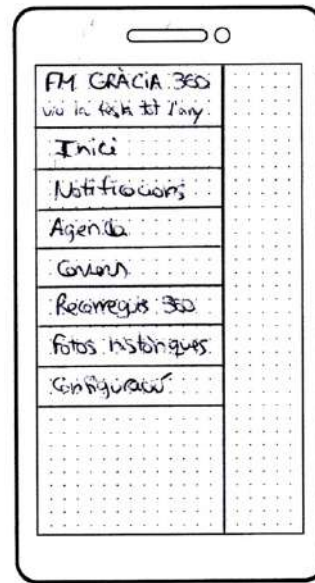 FM GRÀCIA 360
viu la festa tot l'any
Inici
Notificacions
Agenda
Carrers
Recorreguts 360
Fotos històriques
Configuració